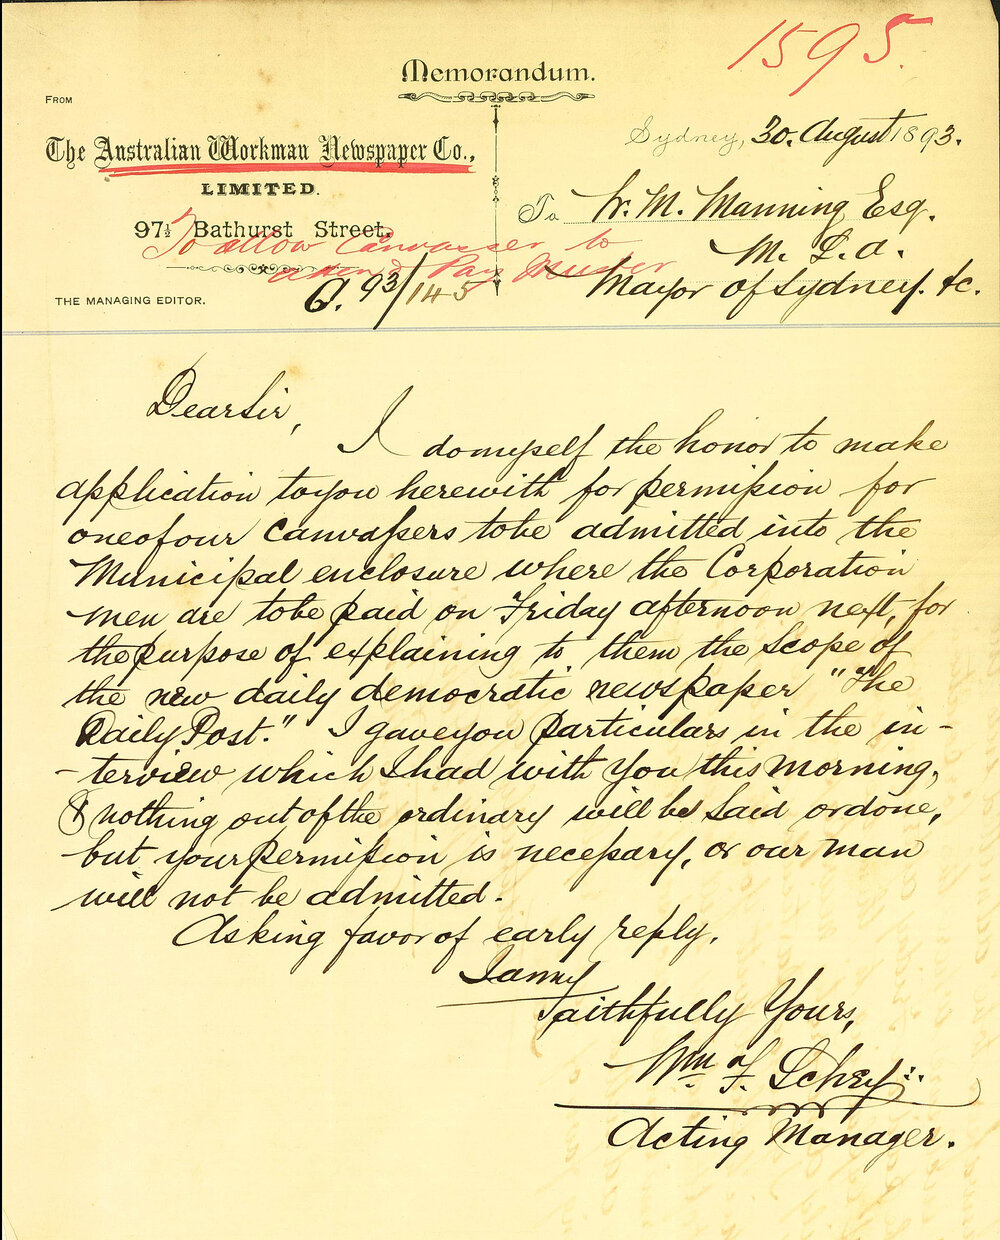 1595.
Memorandum.
FROM
The Australian Workman Newspaper Co.,
LIMITED.
97½ Bathurst Street.
To allow Canvasser to
attend Pay Muster
THE MANAGING EDITOR.
93/145
Sydney, 30. August 1893.
To W. M. Manning Esq.
M. L. A.
Mayor of Sydney. &c.
Dear Sir,
I do myself the honor to make
application to you herewith for permission for
one of our canvassers to be admitted into the
Municipal enclosure where the Corporation
men are to be paid on Friday afternoon next, for
the purpose of explaining to them the scope of
the new daily democratic newspaper "The
Daily Post." I gave you particulars in the in-
-terview which I had with you this morning,
& nothing out of the ordinary will be said or done,
but your permission is necessary, or our man
will not be admitted.
Asking favor of early reply.
I am
Faithfully Yours,
Wm F. Schey
Acting Manager.